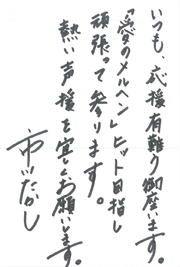 いつも、応援有難う御座います。
「愛のメルヘン」ヒット目指し
頑張って参ります。
熱い声援を宜しくお願いします。